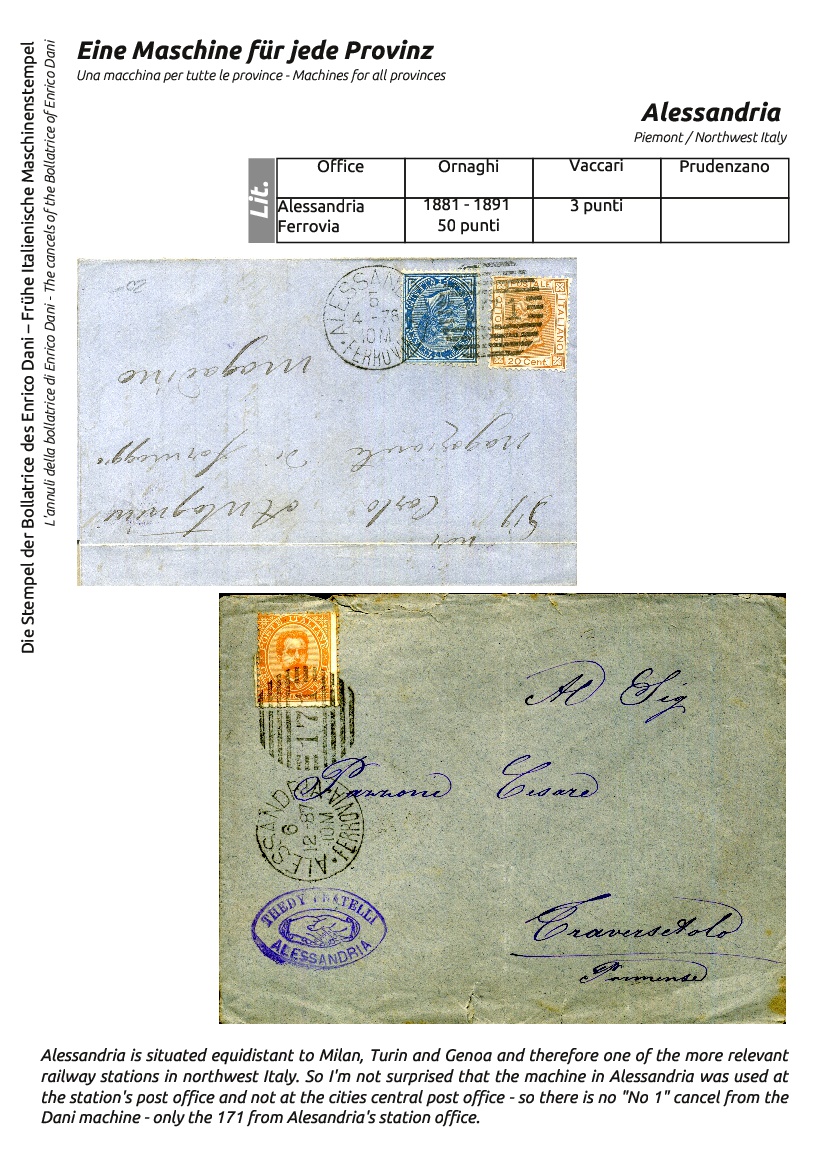 Die Stempel der Bollatrice des Enrico Dani – Frühe Italienische Maschinenstempel
L'annuli della bollatrice di Enrico Dani - The cancels of the Bollatrice of Enrico Dani
Eine Maschine für jede Provinz
Una macchina per tutte le province - Machines for all provinces
Alessandria
Piemont / Northwest Italy
Lit.
Office Ornaghi Vaccari Prudenzano
Alessandria 1881 - 1891 3 punti
Ferrovia 50 punti
ALESSAN
5
4 - 78
10M
FERROV
20 Cent.
ITALIANO
magadino
negoziante di formaggi
Carlo Antognini
Sig
POSTE ITALIANE
17
ALESSANDRIA
6
12-87
10M
FERROVIA
Al Sig
Cesare
Traversetolo
Parmense
THEDY FRATELLI
ALESSANDRIA
Alessandria is situated equidistant to Milan, Turin and Genoa and therefore one of the more relevant
railway stations in northwest Italy. So I'm not surprised that the machine in Alessandria was used at
the station's post office and not at the cities central post office - so there is no "No 1" cancel from the
Dani machine - only the 171 from Alesandria's station office.